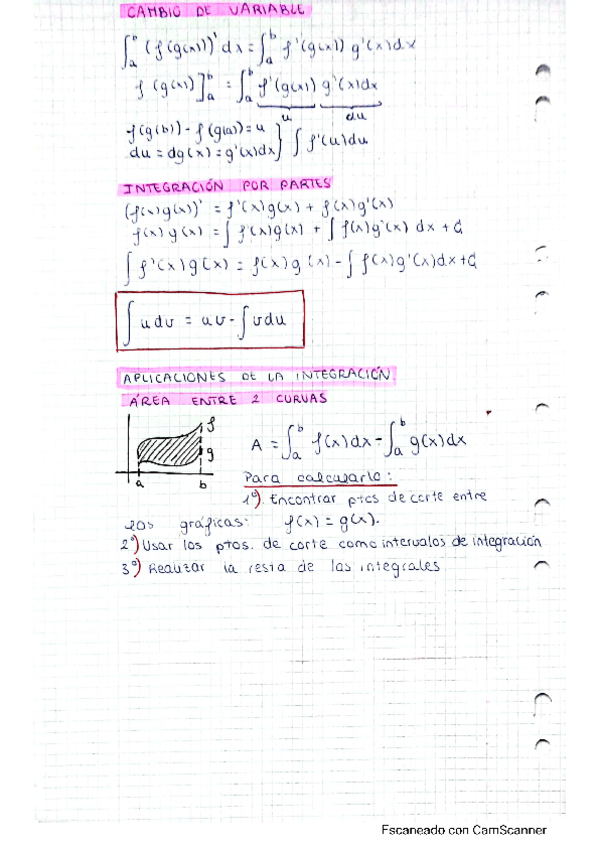 CAMBIO DE VARIABLE
∫ₐᵇ (f(g(x)))' dx = ∫ₐᵇ f'(g(x)) g'(x)dx
f(g(x))]ₐᵇ = ∫ₐᵇ f'(g(x)) g'(x)dx
u du
f(g(b)) - f(g(a)) = u
du = dg(x) = g'(x)dx} ∫ f'(u)du
INTEGRACIÓN POR PARTES
(f(x)g(x))' = f'(x)g(x) + f(x)g'(x)
f(x)g(x) = ∫ f'(x)g(x) + ∫ f(x)g'(x) dx + C
∫ f'(x)g(x) = f(x)g(x) - ∫ f(x)g'(x)dx + C
∫ udv = uv - ∫ vdu
APLICACIONES DE LA INTEGRACIÓN.
ÁREA ENTRE 2 CURVAS
f
g
a b
A = ∫ₐᵇ f(x)dx - ∫ₐᵇ g(x)dx
Para calcularlo:
1º) Encontrar ptos de corte entre
las gráficas: f(x) = g(x).
2º) Usar los ptos. de corte como intervalos de integración
3º) Realizar la resta de las integrales
Escaneado con CamScanner